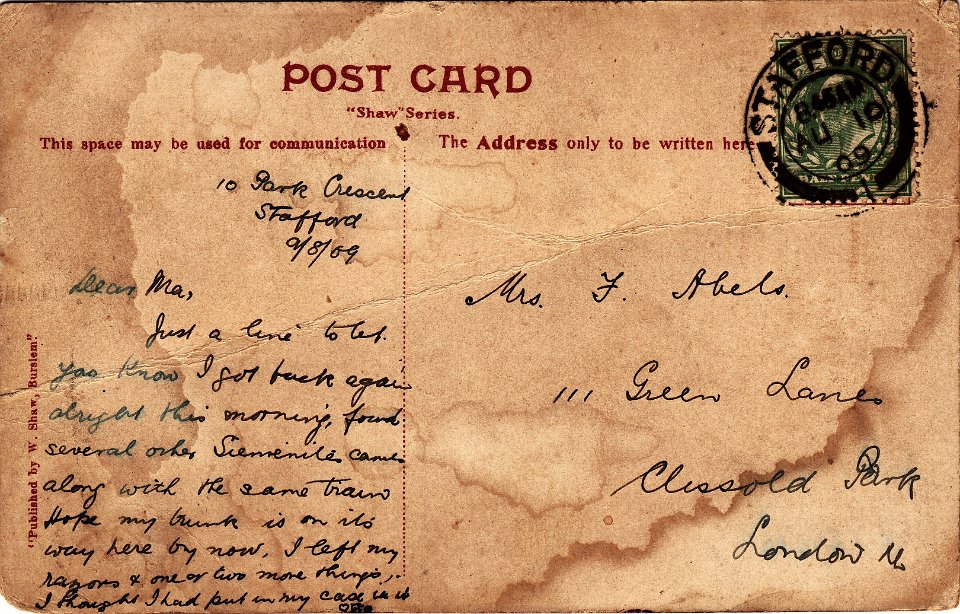 POST CARD
"Shaw" Series.
This space may be used for communication
The Address only to be written here
STAFFORD
8.45AM
AU 10
09
10 Park Crescent
Stafford
9/8/09
Dear Ma,
Just a line to let
you know I got back again
alright this morning, found
several other Siemenites came
along with the same train
Hope my trunk is on its
way here by now, I left my
razors & one or two more things,
I thought I had put in my case in it
Mrs. F. Abels.
111 Green Lanes
Clissold Park
London N.
"Published by W. Shaw, Burslem."